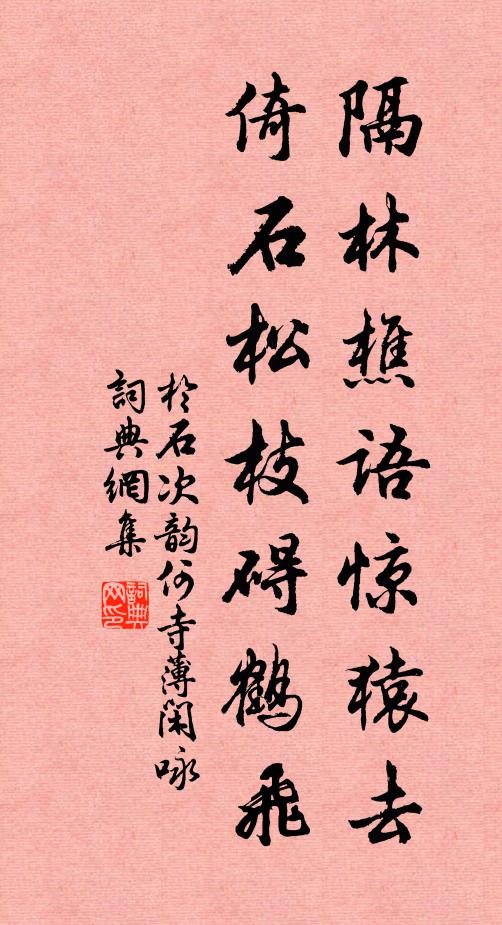 隔林樵语惊猿去
倚石松枝碍鹤飞
於石次韵何寺薄闲咏
詞典網集
詞典
网印